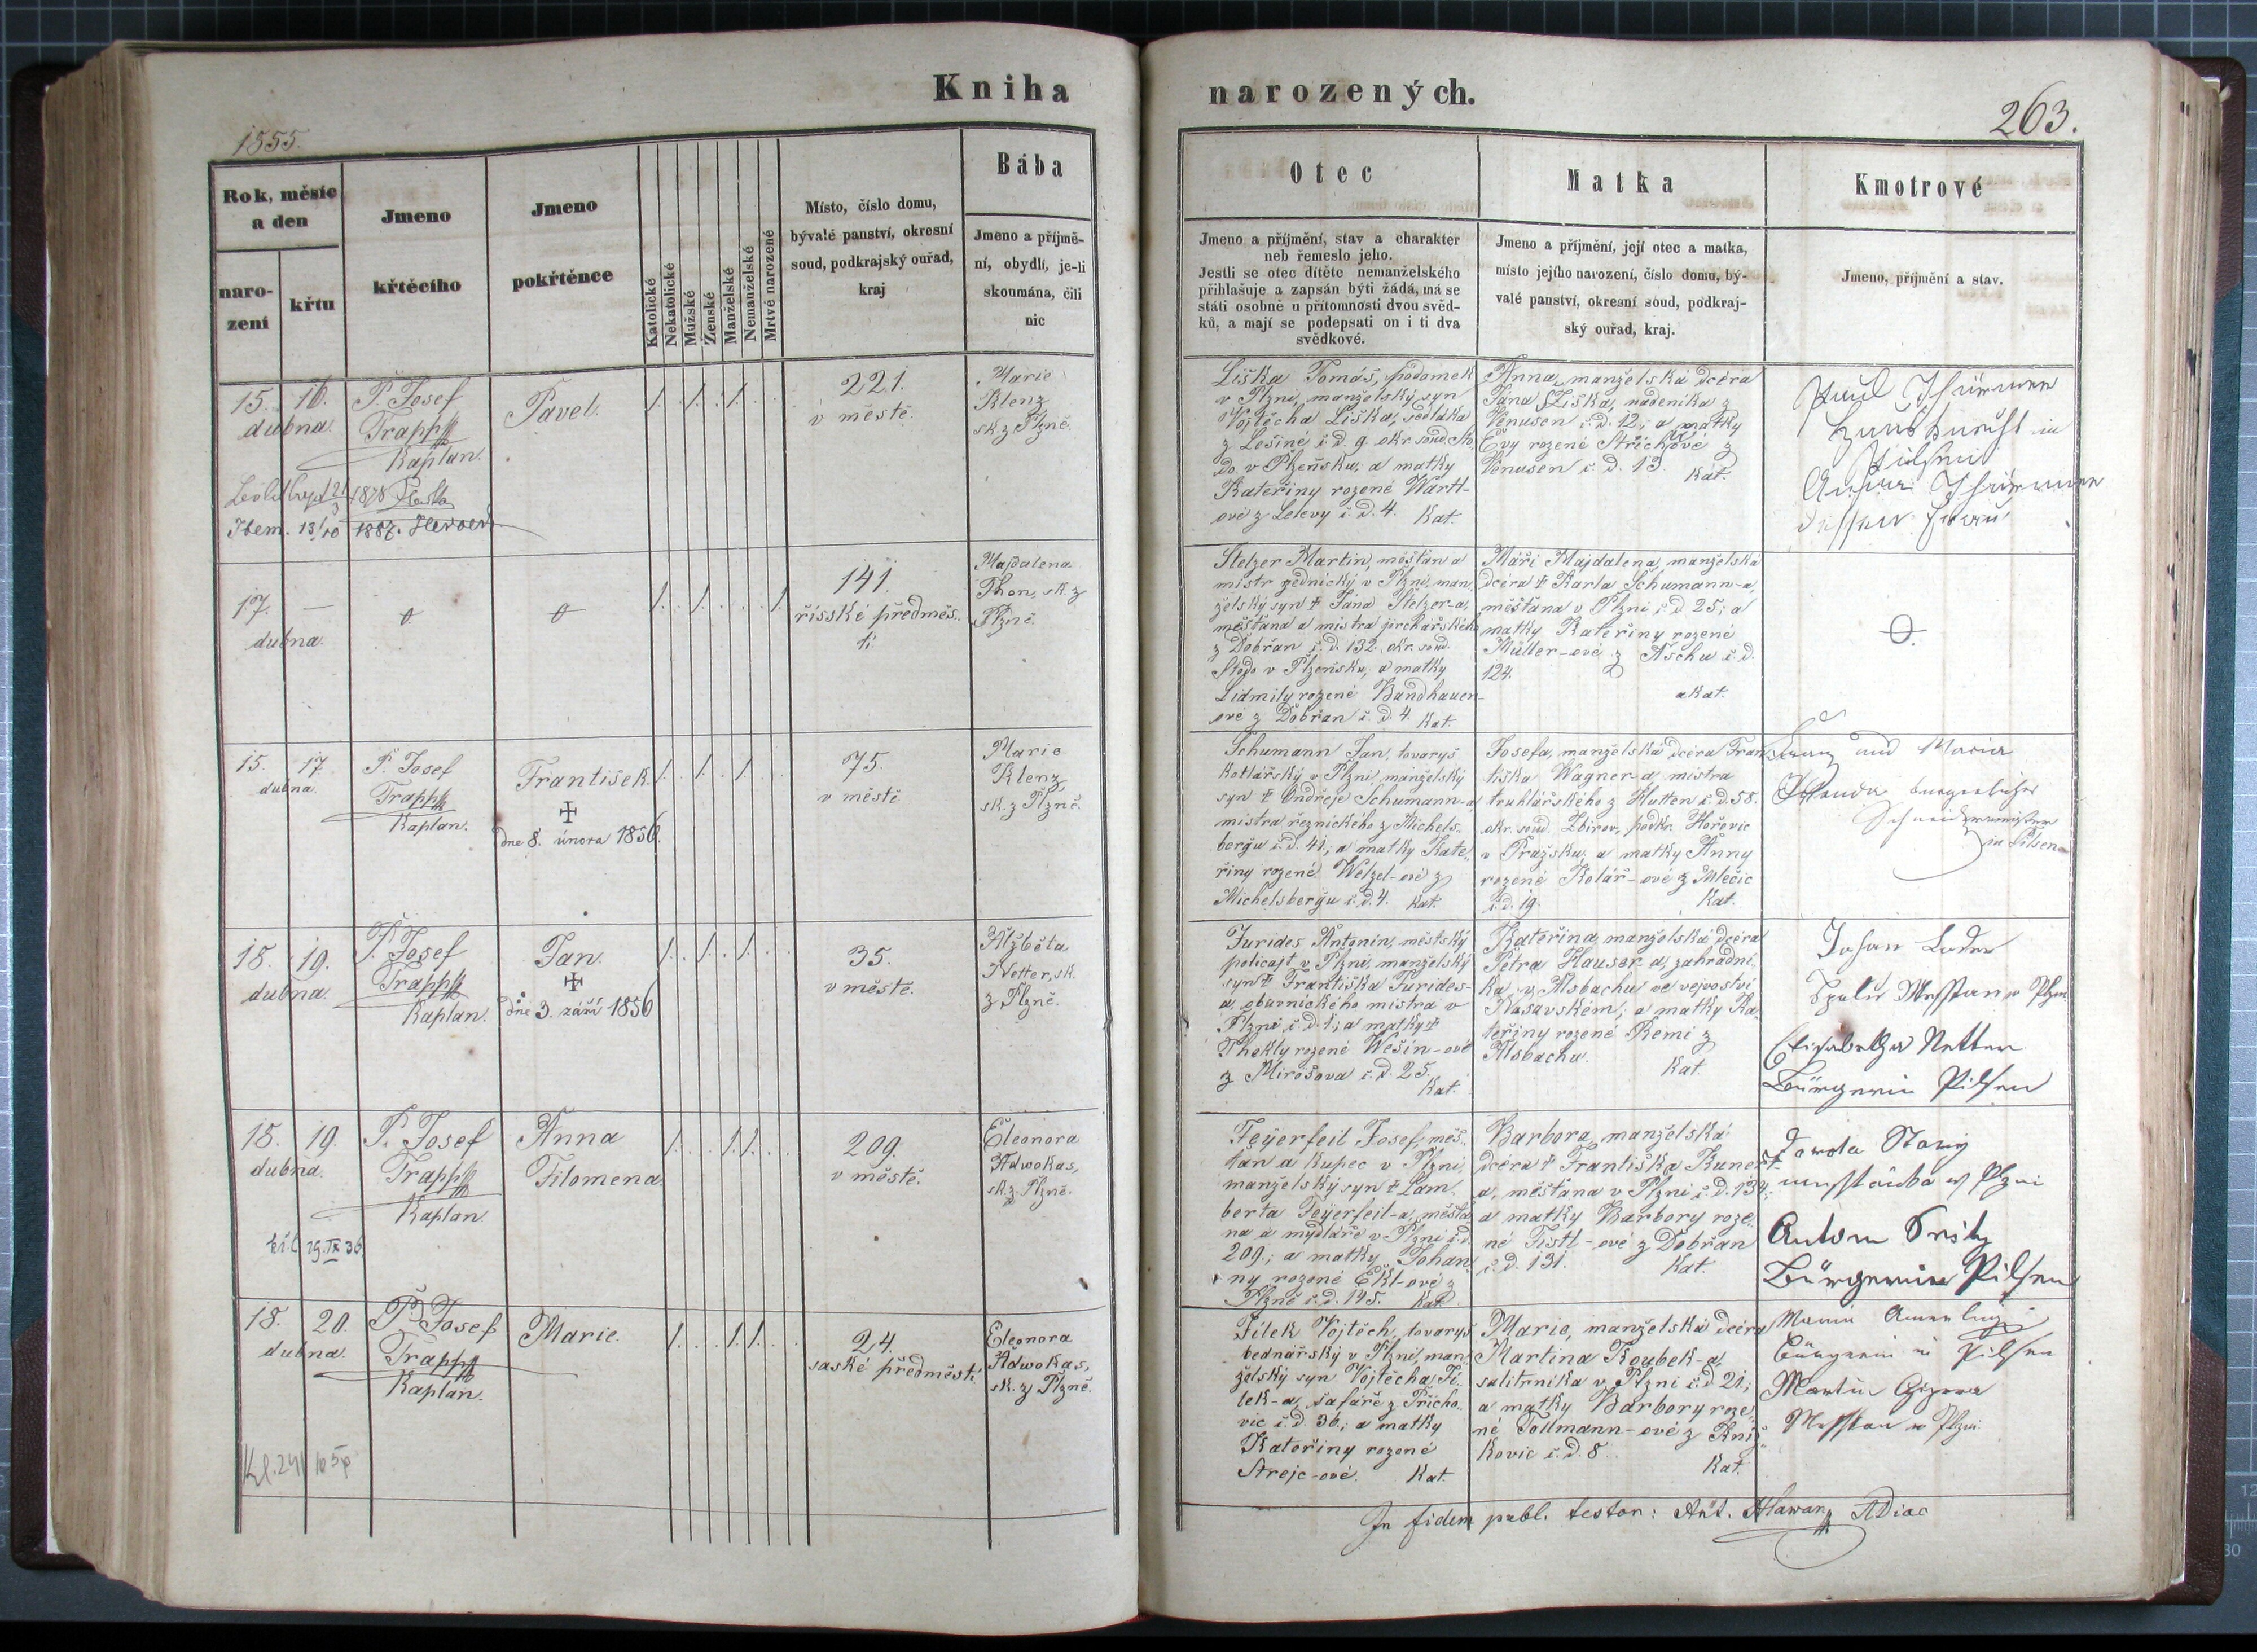 Kniha
1855.
Rok, měsíc
a den
naro-
zení
křtu
Jmeno
křtěcího
Jmeno
pokřtěnce
Katolické
Nekatolické
Mužské
Ženské
Manželské
Nemanželské
Mrtvé narozené
Místo, číslo domu,
bývalé panství, okresní
soud, podkrajský ouřad,
kraj
Bába
Jmeno a příjmě-
ní, obydlí, je-li
skoumána, čili
nic
15. 16.
dubna.
P. Josef
Trapp
Kaplan.
Pavel.
221.
v městě.
Marie
Klenz
sk. z Plzně.
1878
Ibem. 13/10 1887.
17. —
dubna.
141.
říšské předměs-
tí.
Majdalena
Thon, sk. z
Plzně.
15. 17.
dubna.
P. Josef
Trapp
Kaplan.
František.
dne 8. února 1856.
75.
v městě
Marie
Klenz
sk. z Plzně.
18. 19.
dubna.
P. Josef
Trapp
Kaplan.
Jan.
dne 3. září 1856
35.
v městě.
Alžběta
Netter, sk.
z Plzně.
18. 19.
dubna.
P. Josef
Trapp
Kaplan
Anna
Filomena.
209.
v městě.
Eleonora
Adwokas,
sk. z Plzně.
19. IX 36
18. 20.
dubna.
P. Josef
Trapp
Kaplan.
Marie.
24.
saské předměstí.
Eleonora
Adwokas,
sk. z Plzně.
narozených.
263.
Otec
Jmeno a příjmění, stav a charakter
neb řemeslo jeho.
Jestli se otec dítěte nemanželského
přihlašuje a zapsán býti žádá, má se
státi osobně u přítomnosti dvou svěd-
ků, a mají se podepsati on i ti dva
svědkové.
Matka
Jmeno a příjmění, její otec a matka,
místo jejího narození, číslo domu, bý-
valé panství, okresní soud, podkraj-
ský ouřad, kraj.
Kmotrové
Jmeno, příjmění a stav.
Liška Tomáš, podomek
v Plzni, manželský syn
Vojtěcha Liška, sedláka
z Lošině č. d. 9. okr. soud Sto-
do v Plzeňsku; a matky
Kateřiny rozené Wartl-
ové z Lelevy č. d. 4. Kat.
Anna, manželská dcéra
Jana Liška, nádeníka z
Venusen č. d. 12; a matky
Evy rozené
Venusen č. d. 13. Kat.
Paul Thürmer
Hausknecht in
Pilsen
Anna Thürmer
dessen Frau
Stelzer Martin, měšťan a
mistr zednický v Plzni, man-
želský syn † Jána Stelzer-a,
měšťana a mistra jirchářského
z Dobřan č. d. 132. okr. soud.
Stodo v Plzeňsku, a matky
Lidmily rozené Bandhauer-
ové z Dobřan č. d. 4. Kat.
Máří Majdalena, manželská
dcéra † Karla Schumann-a,
měšťana v Plzni č. d. 25; a
matky Kateřiny rozené
Müller-ové z Aschu č. d.
124.
akat.
Schumann Jan, tovaryš
kotlářský v Plzni, manželský
syn † Ondřeje Schumann-a
mistra řeznického z Michels-
bergu č. d. 41; a matky Kate-
řiny rozené Welzel-ové z
Michelsbergu č. d. 4. Kat.
Josefa, manželská dcéra Fran-
tiška Wagner-a, mistra
truhlářského z Hutten č. d. 58.
okr. soud. Zbirov, podkr. Hořovic
v Pražsku, a matky Anny
rozené Kolář-ové z Mlečic
č. d. 19. Kat.
Franz und Maria
bürgerlicher
Schneidermeister
in Pilsen
Jurides Antonín, městský
policajt v Plzni, manželský
syn † Františka Jurides-
a, obuvnického mistra v
Plzni č. d. 1; a matky †
Thekly rozené Wešín-ové
z Mirošova č. d. 25.
Kat.
Kateřina, manželská dcéra
Petra Hauser-a, zahradní-
ka v Alsbachu ve vejvoství
Nasavském; a matky Ka-
teřiny rozené Remi z
Alsbachu.
Kat.
Johan Loder
Messtan w Plzni
Elisabetha Netter
Bürgerin Pilsen
Feyerfeil Josef, měš-
ťan a kupec v Plzni,
manželský syn † Lam-
berta Feyerfeil-a, měšťa-
na a mydláře v Plzni č. d.
209.; a matky Johan-
ny rozené Ekl-ové z
Plzně č. d. 145. Kat.
Barbora, manželská
dcéra † Františka Kunert-
a, měšťana v Plzni č. d. 134;
a matky Barbory roze-
né Tistl-ové z Dobřan
č. d. 131. Kat.
w Plzni
Bürgerin Pilsen
Fílek Vojtěch, tovaryš
bednářský v Plzni, man-
želský syn Vojtěcha Fí-
lek-a, šafáře z Přícho-
vic č. d. 36.; a matky
Kateřiny rozené
Strejc-ové. Kat.
Marie, manželská dcéra
Martina Koubek-a,
salitrníka v Plzni č. d. 21;
a matky Barbory roze-
né Tollmann-ové z Kní-
kovic č. d. 8.
Kat.
Bürgerin in Pilsen
Martin
Messtan w Plzni
In fidem publ. testor: Ant. Hlawan ADiac